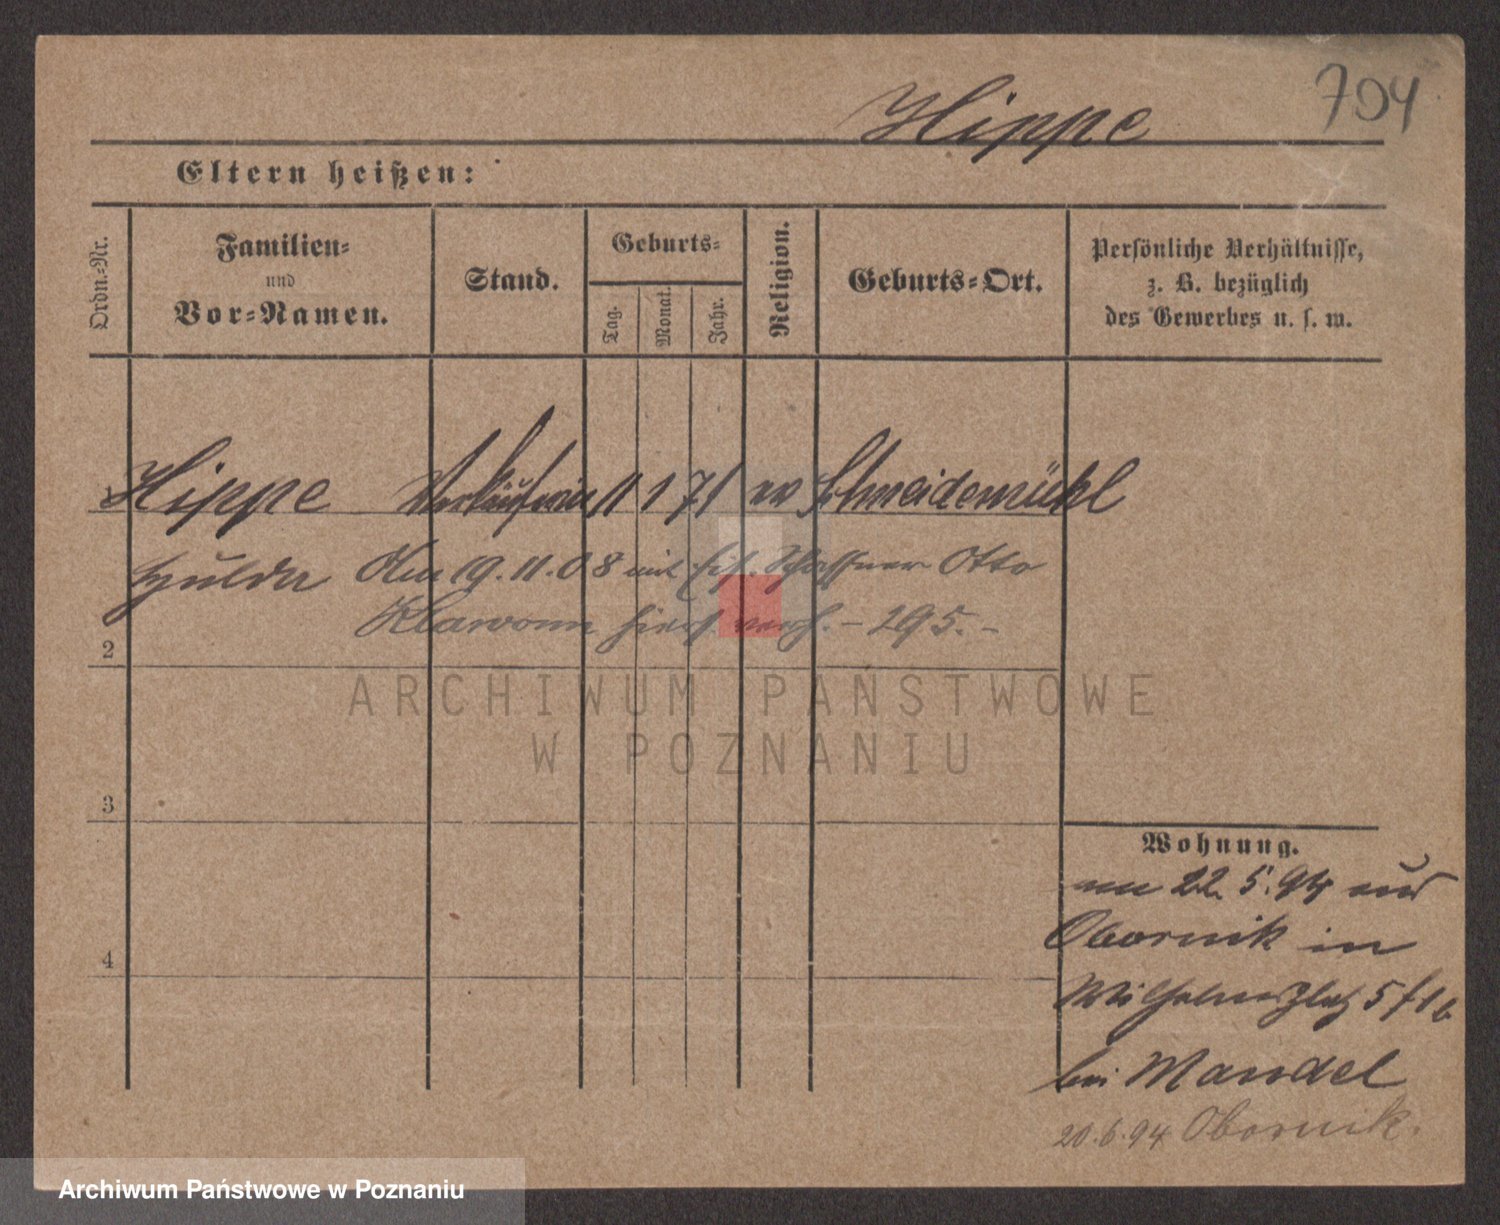 Hippe
704
Eltern heißen:
Ordn.-Nr.
Familien-
und
Vor-Namen.
Stand.
Geburts-
Tag.
Monat.
Jahr.
Religion.
Geburts-Ort.
Persönliche Verhältnisse,
z. B. bezüglich
des Gewerbes u. s. w.
1 Hippe Verkäuferin 11 1 71 ev Schneidemühl
Hulda Am 19.11.08 mit Eis. Schaffner Otto
Klawonn hiers. verh. - 295. -
2
3
4
Wohnung.
am 22. 5. 94 aus
Obornik in
Wilhelmsplatz 5 f 1 b
bei Mandel
20.6.94 Obornik.
ARCHIWUM PAŃSTWOWE
W POZNANIU
Archiwum Państwowe w Poznaniu